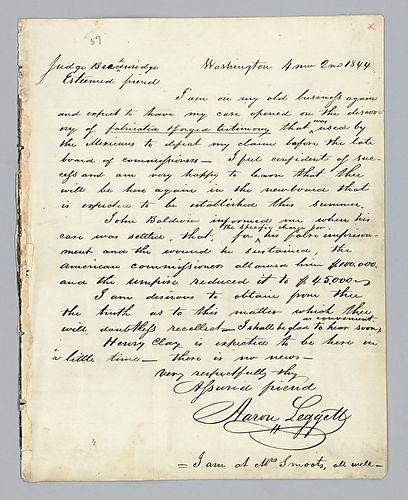 57
x
Judge Breckenridge Washington 4 mo 2nd 1844
Esteemed friend
I am on my old business again
and expect to have my case opened on the discov-
ery of fabricated & forged testimony that was used by
the Mexicans to defeat my claim before the late
board of commissioners — I feel confident of suc-
cess and am very happy to learn that thee
will be here again in the new board that
is expected to be established this summer.
John Baldwin informed me when his
case was settled, that, the specific charge for
for his false imprison-
ment and the wound he sustained, the
American commissioners allowed him $100.000
and the umpire reduced it to $45.000 —
I am desirous to obtain from thee
the truth as to this matter which thee
will doubtless recollect — I shall be glad to hear soon
as convenient
Henry Clay is expected to be here in
a little time — there is no news —
Very respectfully thy
Assured friend
Aaron Leggett
— I am at Mrs Smoots, all well —